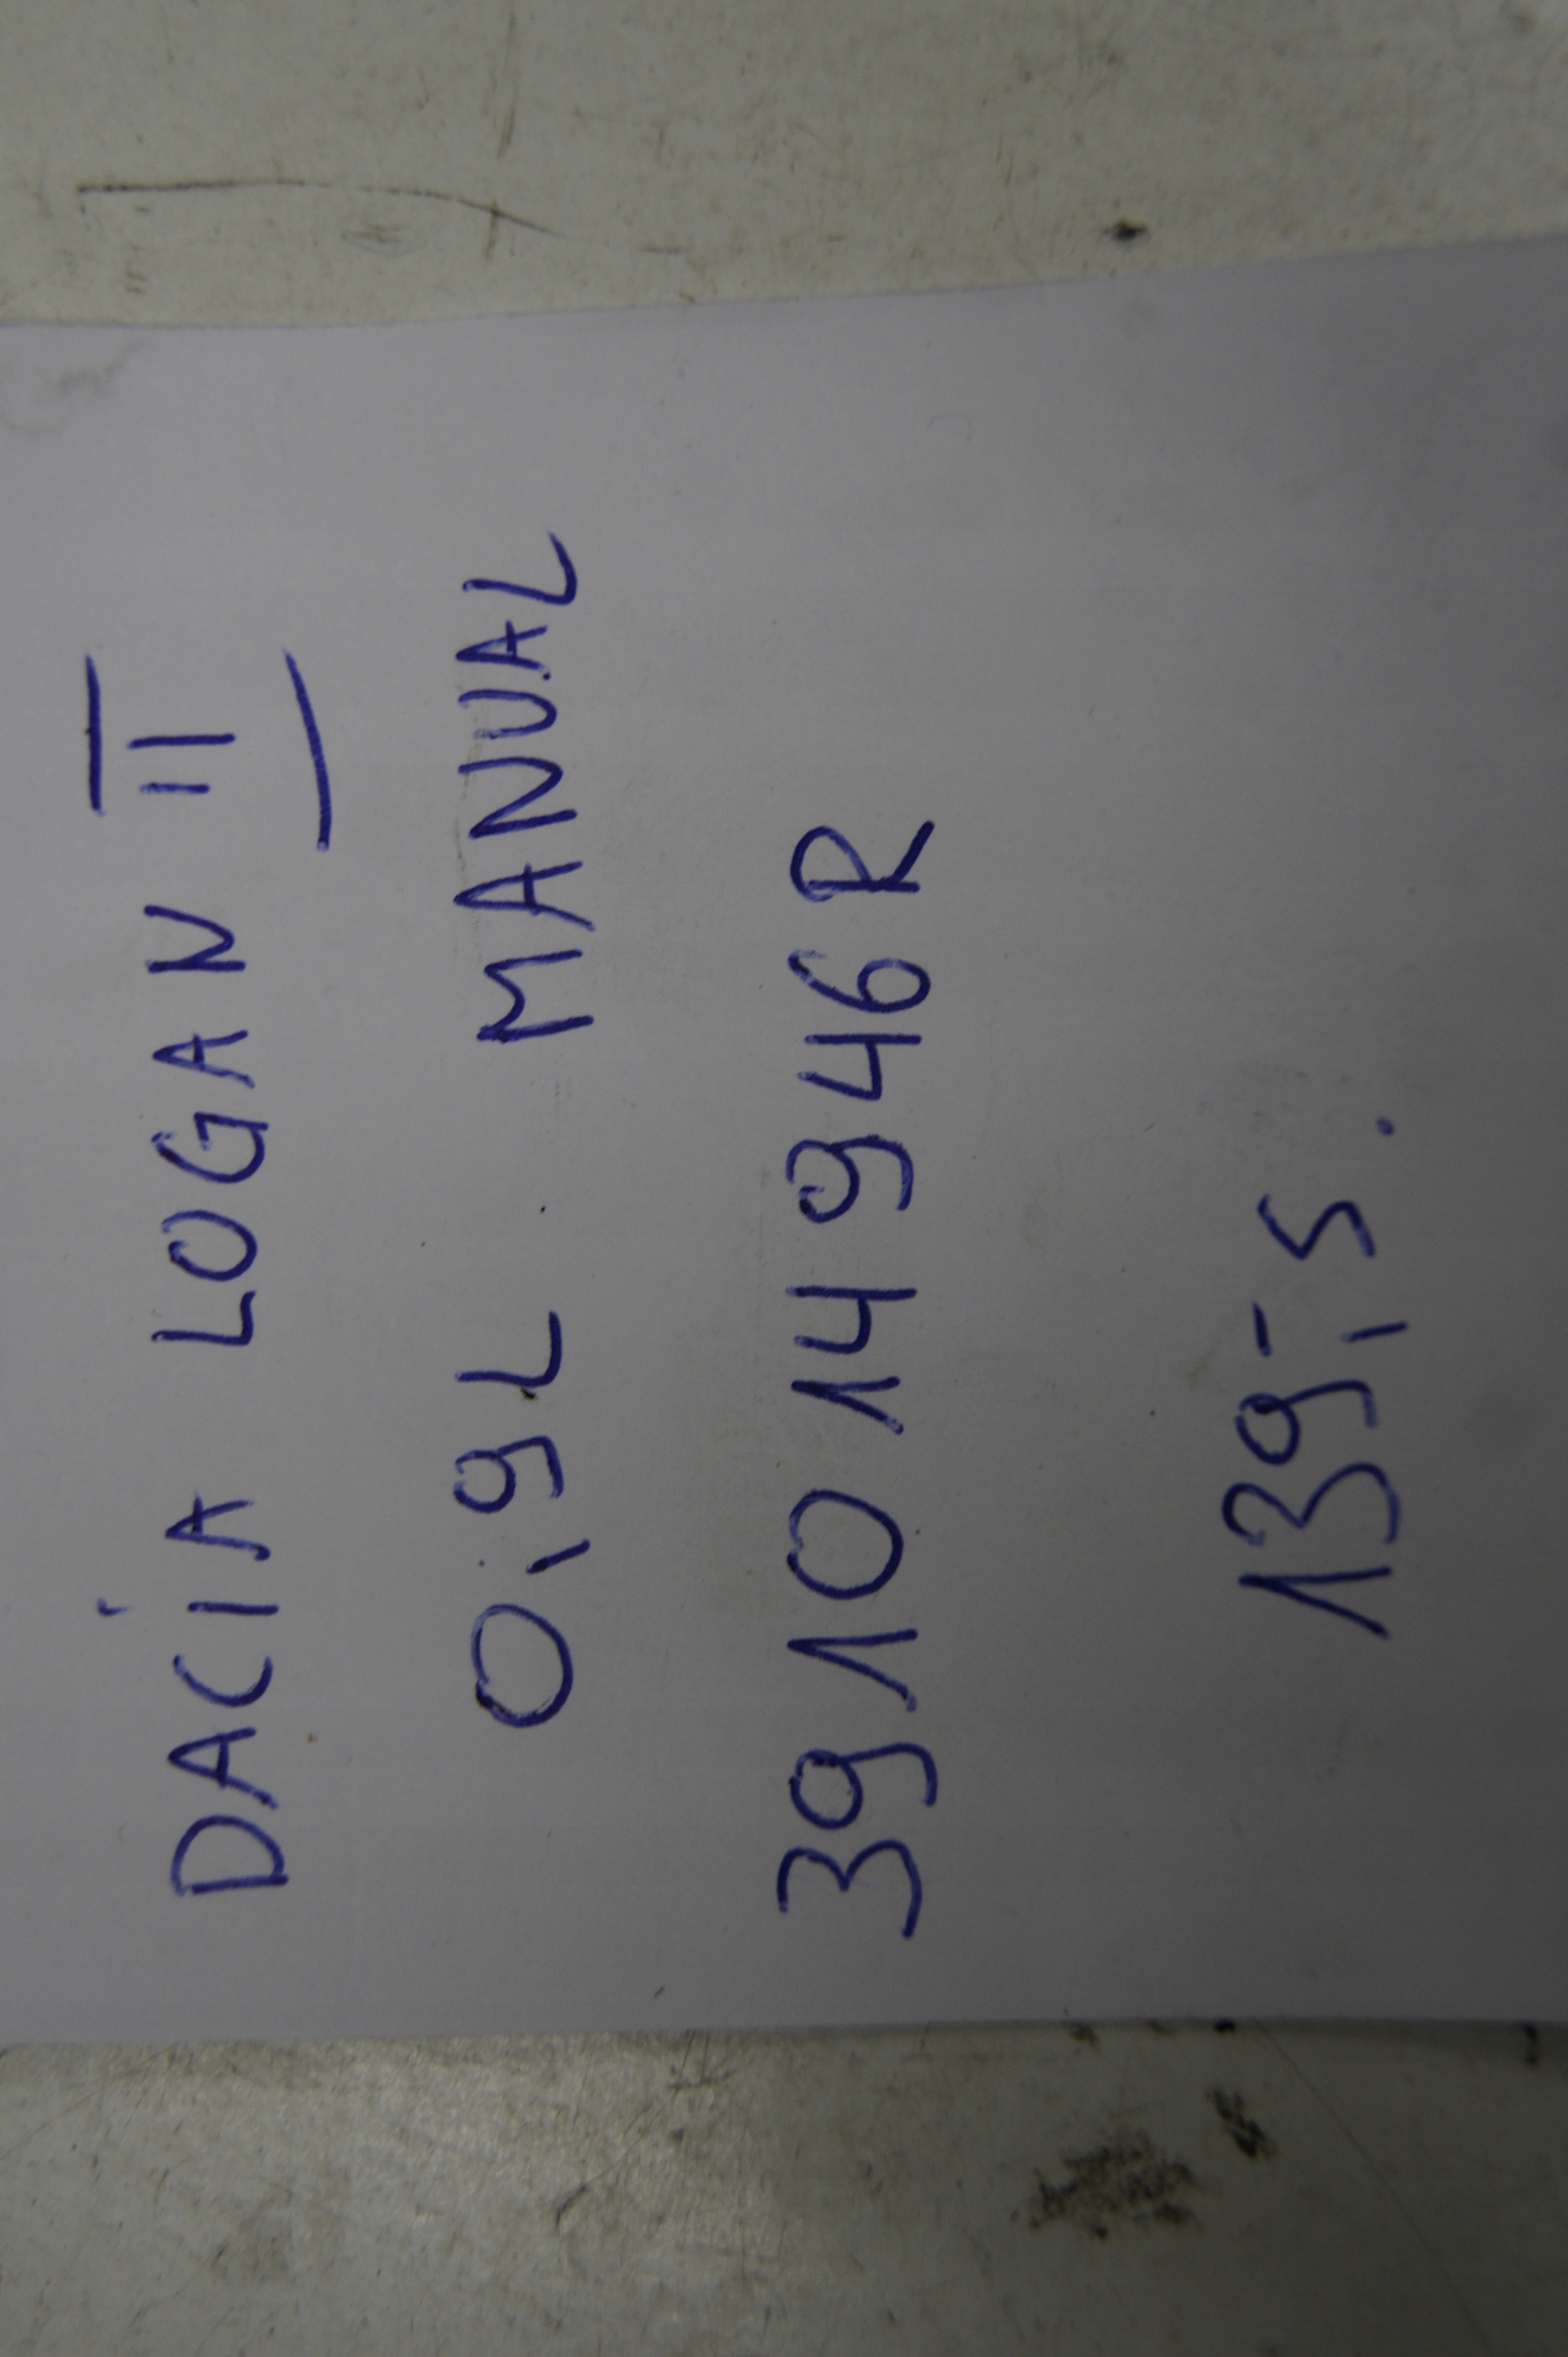 DACIA LOGAN II
0,9L MANUAL
391014946R
139,- S.